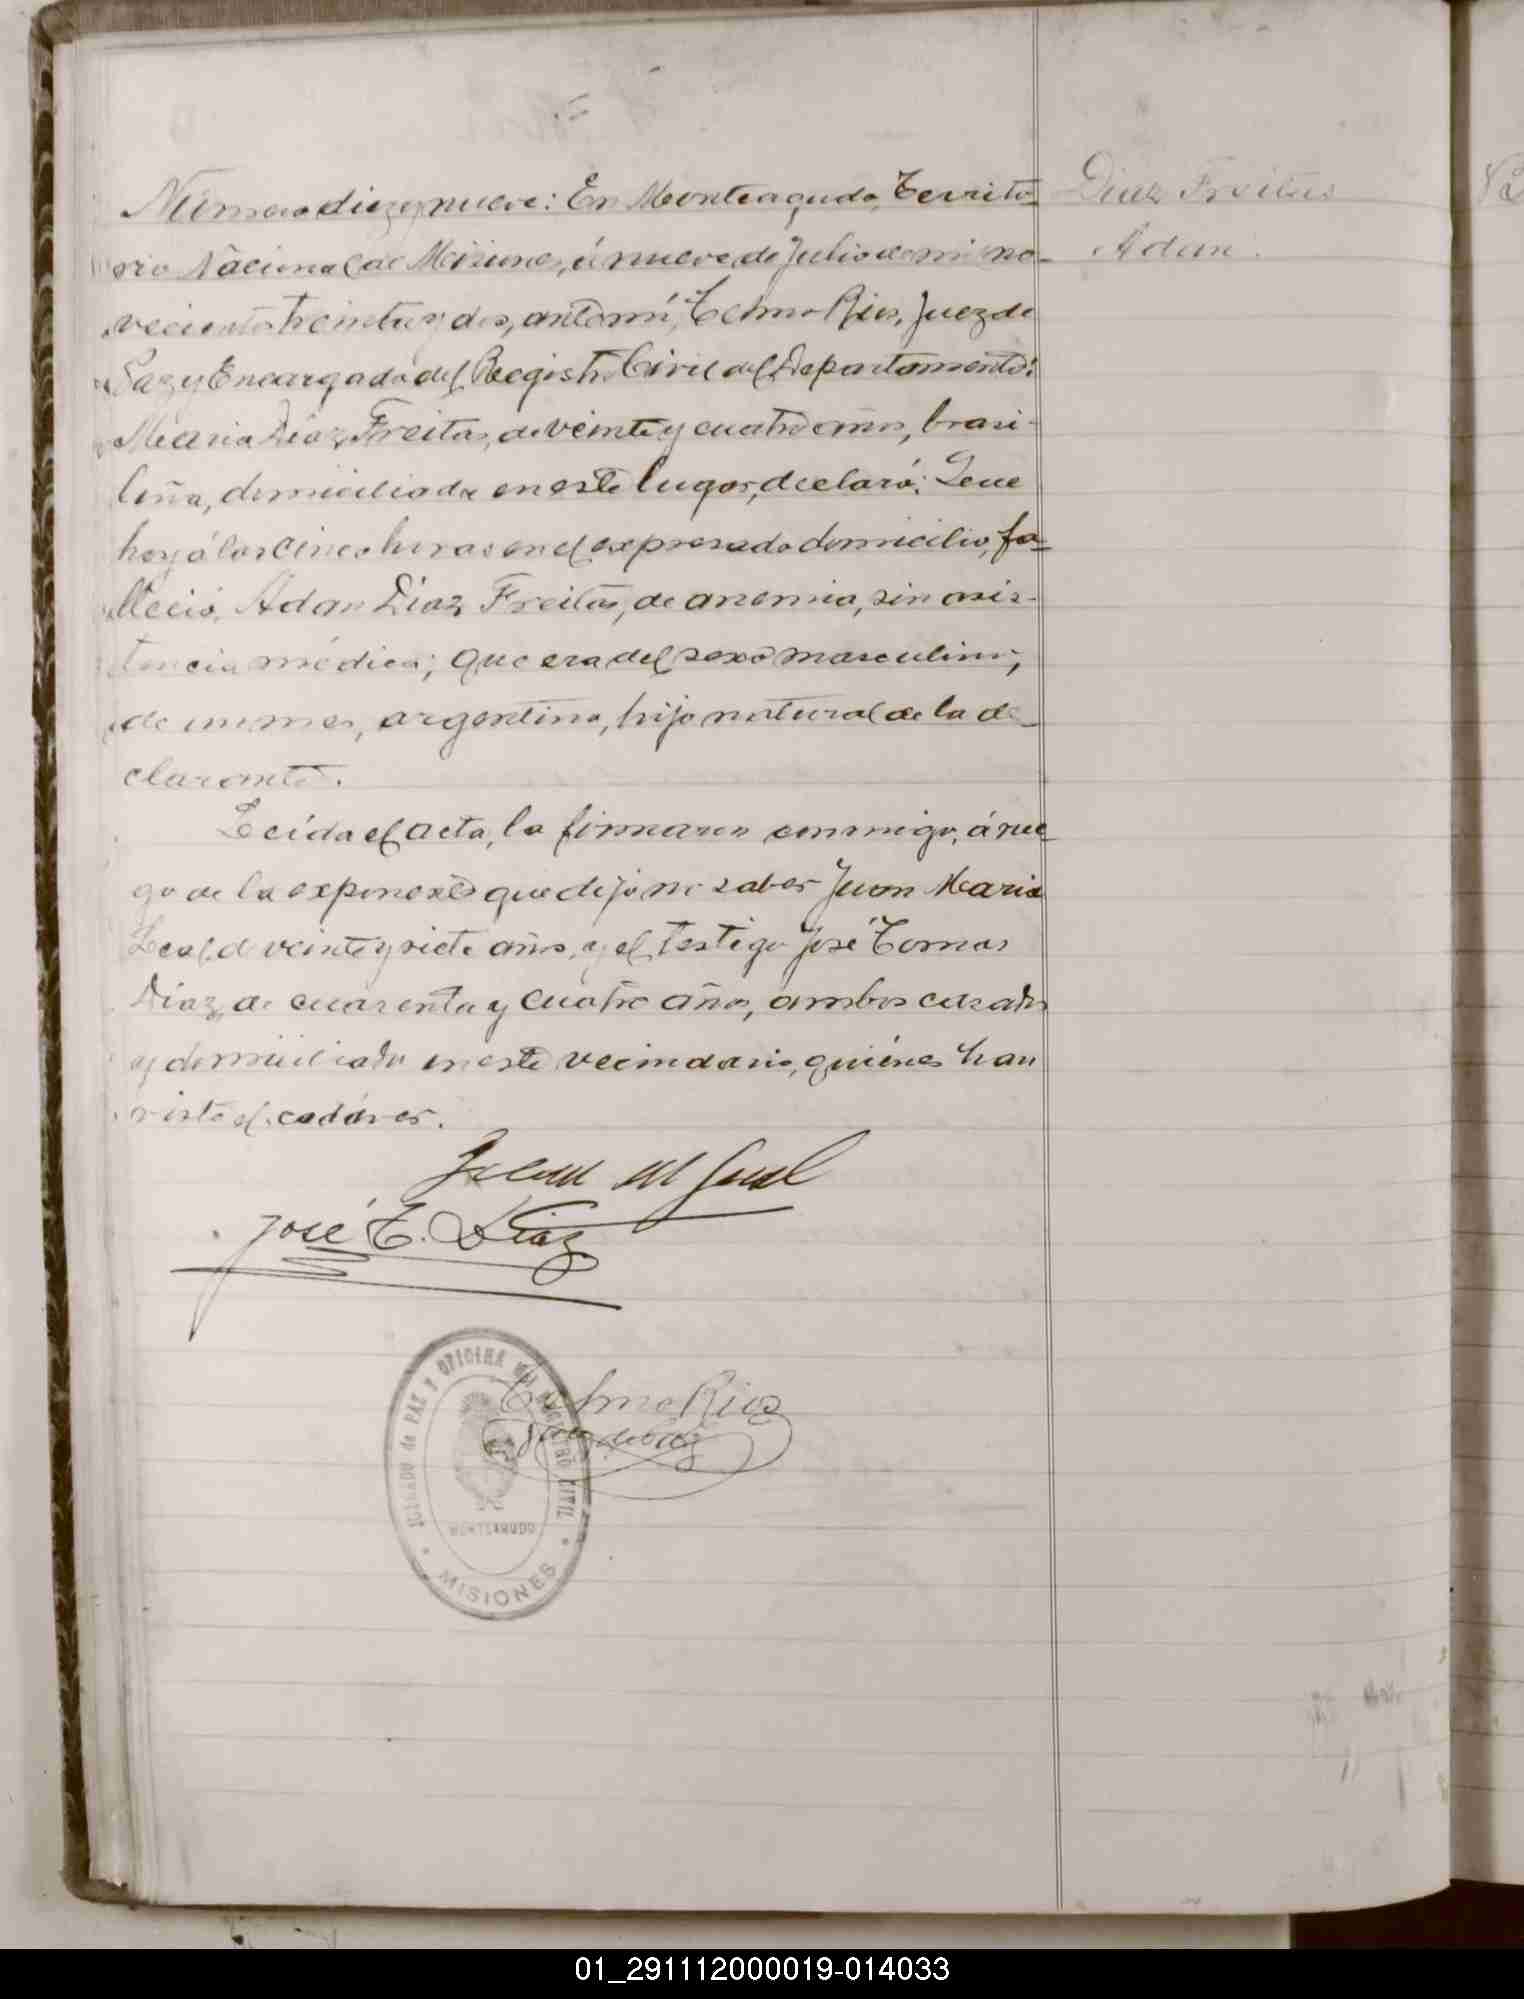 Número diez y nueve: En Monteagudo, Territo-
rio Nacional de Misiones, á nueve de Julio de mil no-
vecientos treinta y dos, ante mí, Telmo Rios, Juez de
Paz y Encargado del Registro Civil del Departamento:
Maria Diaz Freitas, de veinte y cuatro años, brasi-
leña, domiciliada en este lugar, declaró: Que
hoy á las cinco horas en el expresado domicilio, fa-
lleció, Adan Diaz Freitas, de anemia, sin asis-
tencia médica; que era del sexo masculino,
de un mes, argentino, hijo natural de la de-
clarante.
Leída el acta, la firmaron conmigo, á rue-
go de la exponente que dijo no saber Juan Maria
Leal de veinte y siete años, y el testigo José Tomas
Diaz, de cuarenta y cuatro años, ambos casados
y domiciliados en este vecindario, quiénes han
visto el cadáver.
José T. Diaz
Telmo Rios
Juez de Paz
JUZGADO de PAZ Y OFICINA DEL REGISTRO CIVIL
MONTEAGUDO
MISIONES
Diaz Freitas
Adan.
01_291112000019-014033